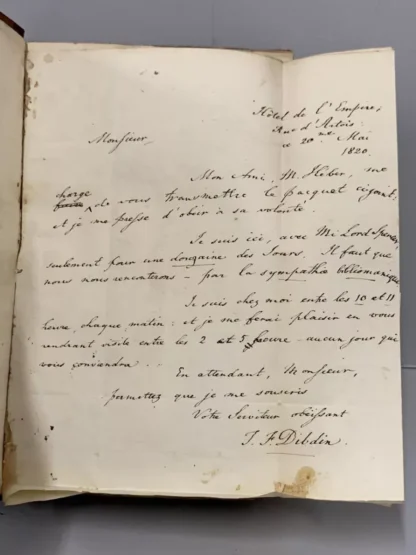 Hôtel de l'Empire,
Rue d'Artois
ce 20me Mai
1820.
Monsieur,
Mon Ami, M. Heber, me
charge
faire de vous transmettre le pacquet cijoint:
et je me presse d'obeir à sa volonté.
Je suis ici, avec Mi Lord Spencer,
seulement pour une douzaine des Jours. Il faut que
nous nous rencontrons - par la sympathie bibliomanique
Je suis chez moi entre les 10 et 11
heure, chaque matin: et je me ferai plaisir en vous
rendant visite entre les 2 et 5 heure - aucun jour qui
vous conviendra..
En attendant, Monsieur,
permettez que je me souscris
Votre Serviteur obeissant
T. F. Dibdin.